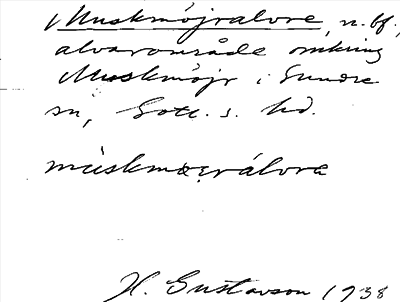 Muskmöjralvre, n. bf.,
alvarområde omkring
Muskmöjr i Sundre
sn, Gotl. s. hd.
múskmœ̨rálvra
H. Gustavson 1938